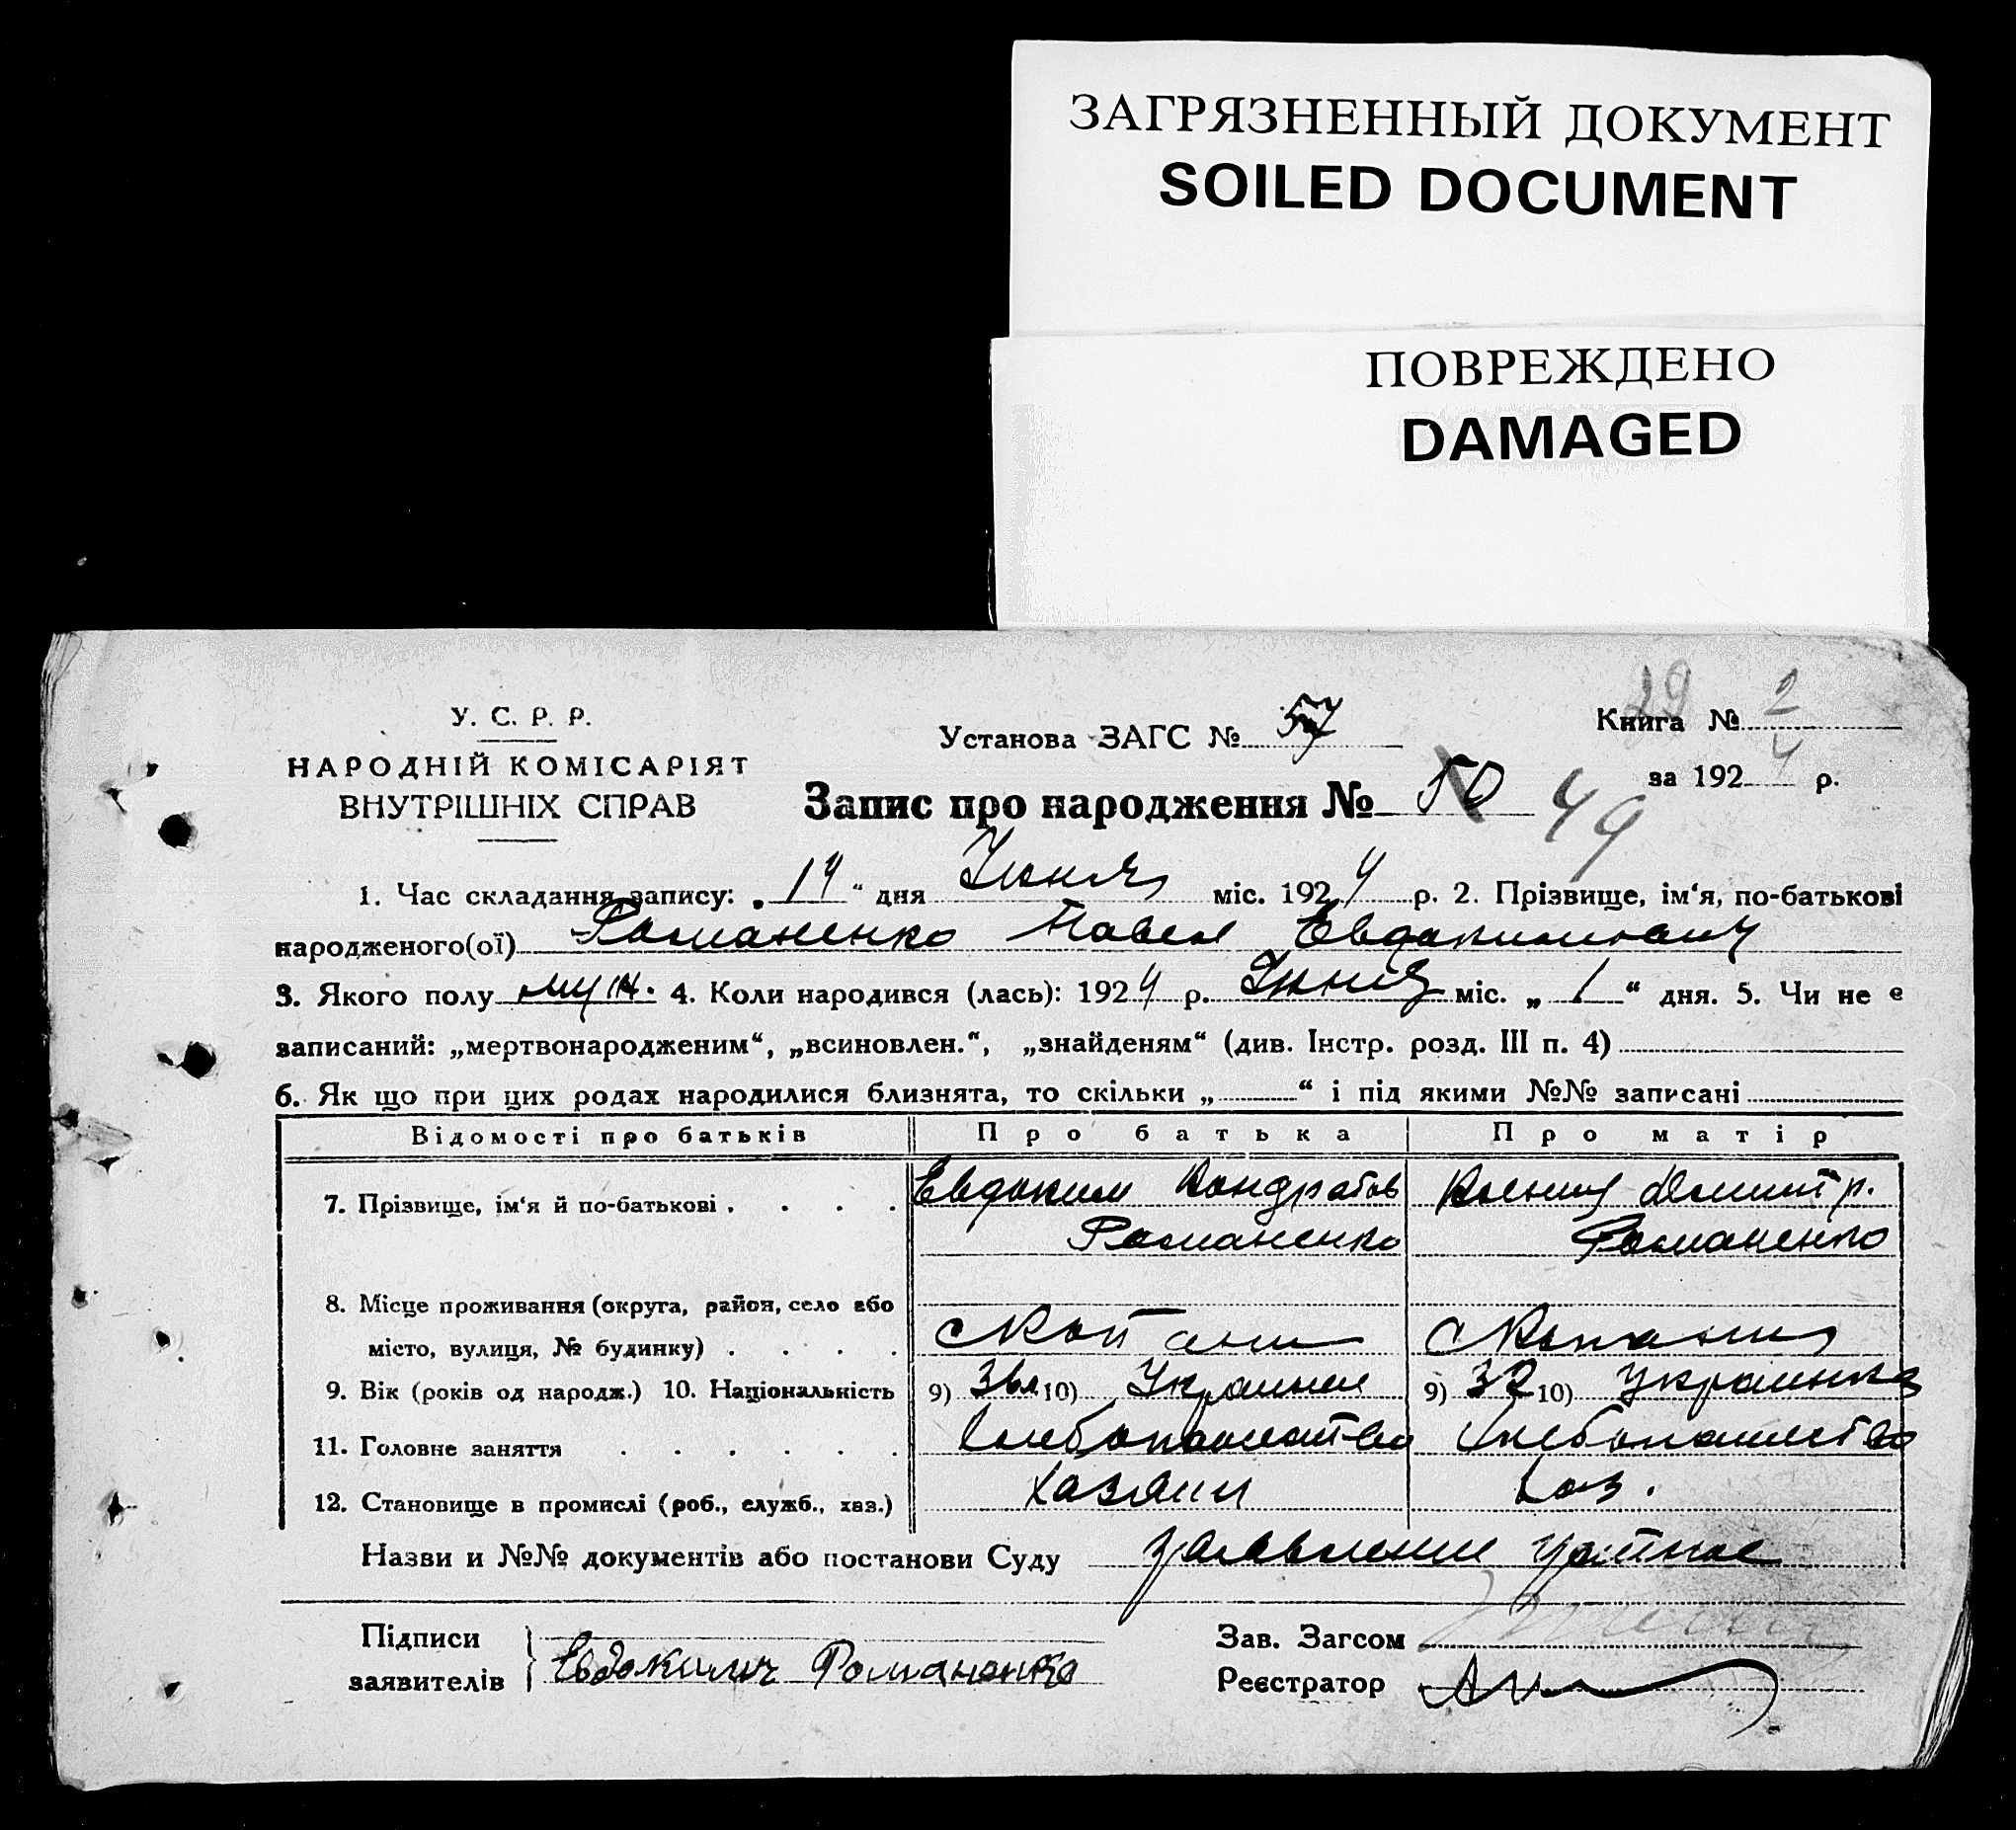 ЗАГРЯЗНЕННЫЙ ДОКУМЕНТ
SOILED DOCUMENT
ПОВРЕЖДЕНО
DAMAGED
29
У. С. Р. Р.
НАРОДНІЙ КОМІСАРІЯТ
ВНУТРІШНІХ СПРАВ
Установа ЗАГС № 57
Книга № 2
за 1924 р.
Запис про народження № 50 49
1. Час складання запису: „14“ дня Июня міс. 1924 р. 2. Прізвище, ім‘я, по-батькові
народженого(ої) Романенко Павел Евдокимович
3. Якого полу муж. 4. Коли народився (лась): 1924 р. Июня міс. „1“ дня. 5. Чи не є
записаний: „мертвонародженим“, „всиновлен.“, „знайденям“ (див. Інстр. розд. III п. 4)
6. Як що при цих родах народилися близнята, то скільки „ “ і під якими №№ записані
Відомості про батьків Про батька Про матір
7. Прізвище, ім‘я й по-батькові Евдоким Кондратов Ксения Дмитр.
Романенко Романенко
8. Місце проживання (округа, район, село або
місто, вулиця, № будинку) с Копани с Копани
9. Вік (років од народж.) 10. Національність 9) 36 л 10) Украинец 9) 32 10) Украинка
11. Головне заняття Хлебопашество Хлебопашество
12. Становище в промислі (роб., служб., хаз.) Хазяин Хаз.
Назви и №№ документів або постанови Суду Заявление устное
Підписи
заявителів Евдоким Романенко
Зав. Загсом
Реєстратор